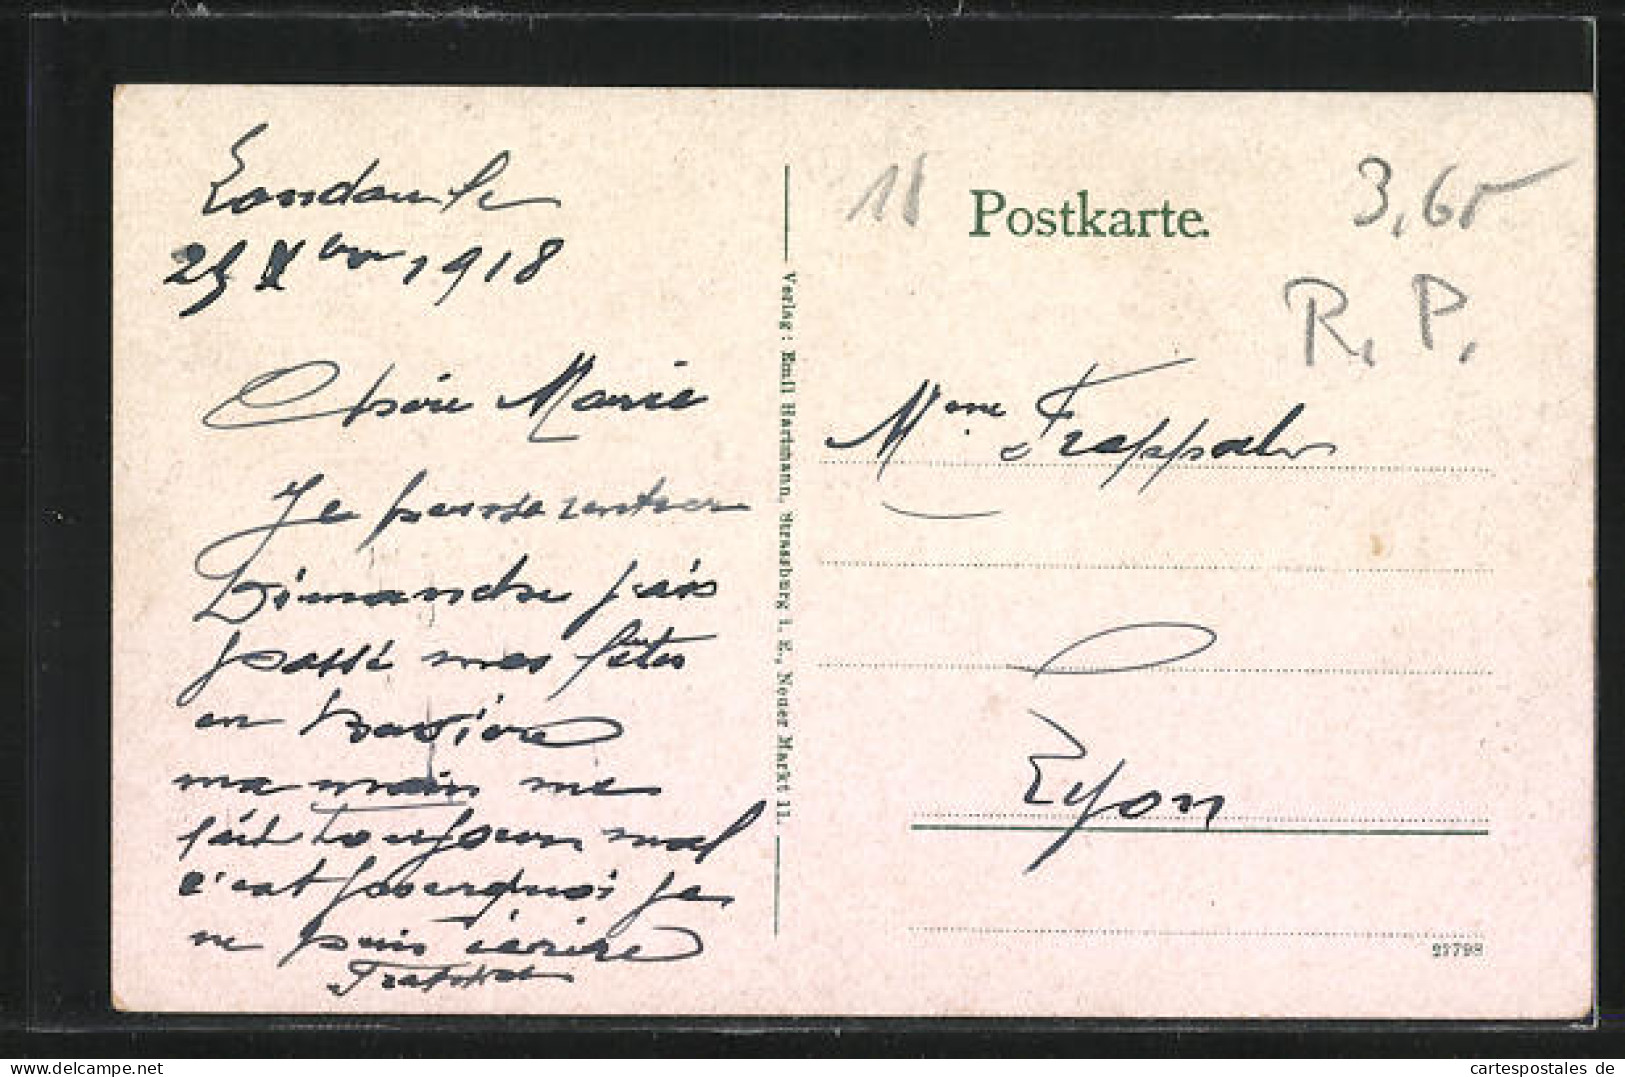 Landau le
25 Xbre 1918
Chère Marie
Je pense rentrer
Dimanche j'ais
passé mes fêtes
en Bavière
ma main me
fait toujours mal
c'est pourquoi je
ne puis t'écrire
Verlag: Emil Hartmann, Strassburg i. E., Neuer Markt 11.
18
Postkarte.
3,65
R. P.
Mme Frappat
Lyon
27798
cartespostales de